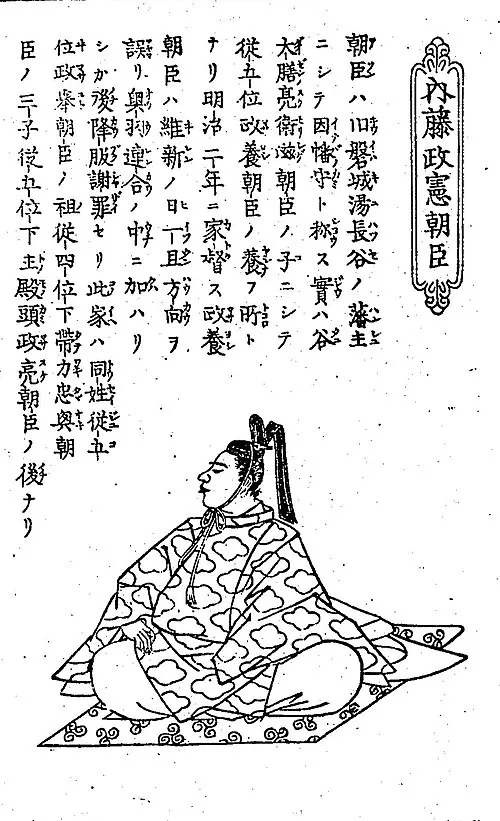 内藤政憲朝臣
朝臣ハ旧磐城湯長谷ノ藩主
ニシテ因幡守ト称ス實ハ谷
大膳亮衛滋朝臣ノ子ニシテ
従五位政養朝臣ノ養フ所ト
ナリ明治二年ニ家督ス政養
朝臣ハ維新ノ日一旦方向ヲ
誤リ奥羽連合ノ中ニ加ハリ
シカ後降服謝罪セリ此家ハ同姓従五
位政挙朝臣ノ祖従四位下帯刀忠興朝
臣ノ三子従五位下主殿頭政亮朝臣ノ後ナリ